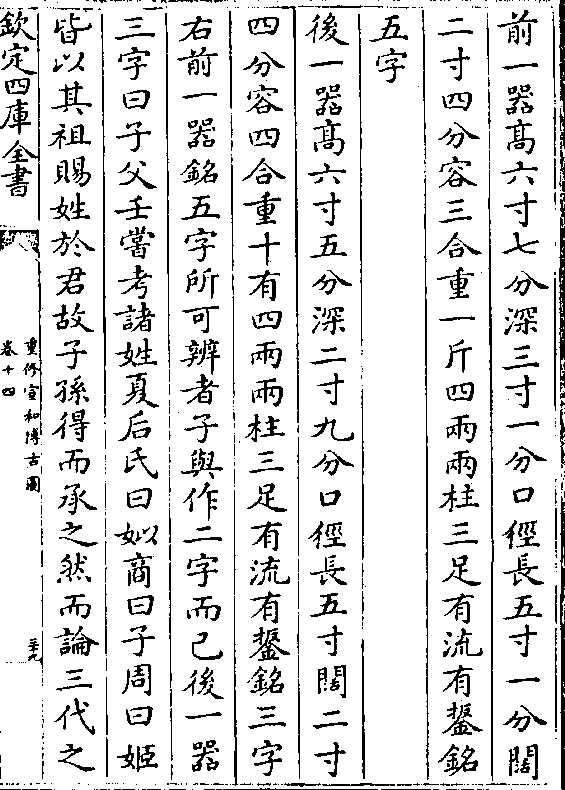 前一器髙六寸七分深三寸一分口徑長五寸一分闊
二寸四分容三合重一斤四兩兩柱三足有流有鋬銘
五字
後一器髙六寸五分深二寸九分口徑長五寸闊二寸
四分容四合重十有四兩兩柱三足有流有鋬銘三字
右前一器銘五字所可辨者子與作二字而已後一器
三字曰子父壬嘗考諸姓夏后氏曰姒商曰子周曰姬
皆以其祖賜姓於君故子孫得而承之然而論三代之
欽定四庫全書
重修宣和博古圖
卷十四